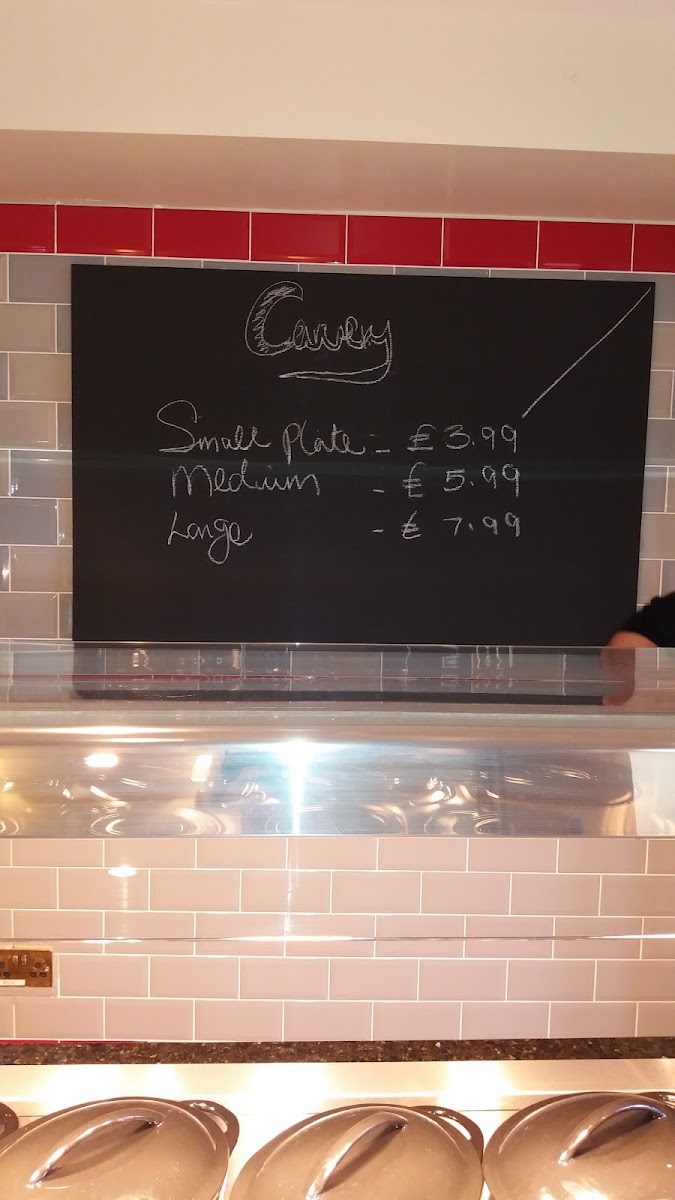 Carvery
Small Plate - £3.99
Medium - £5.99
Large - £7.99